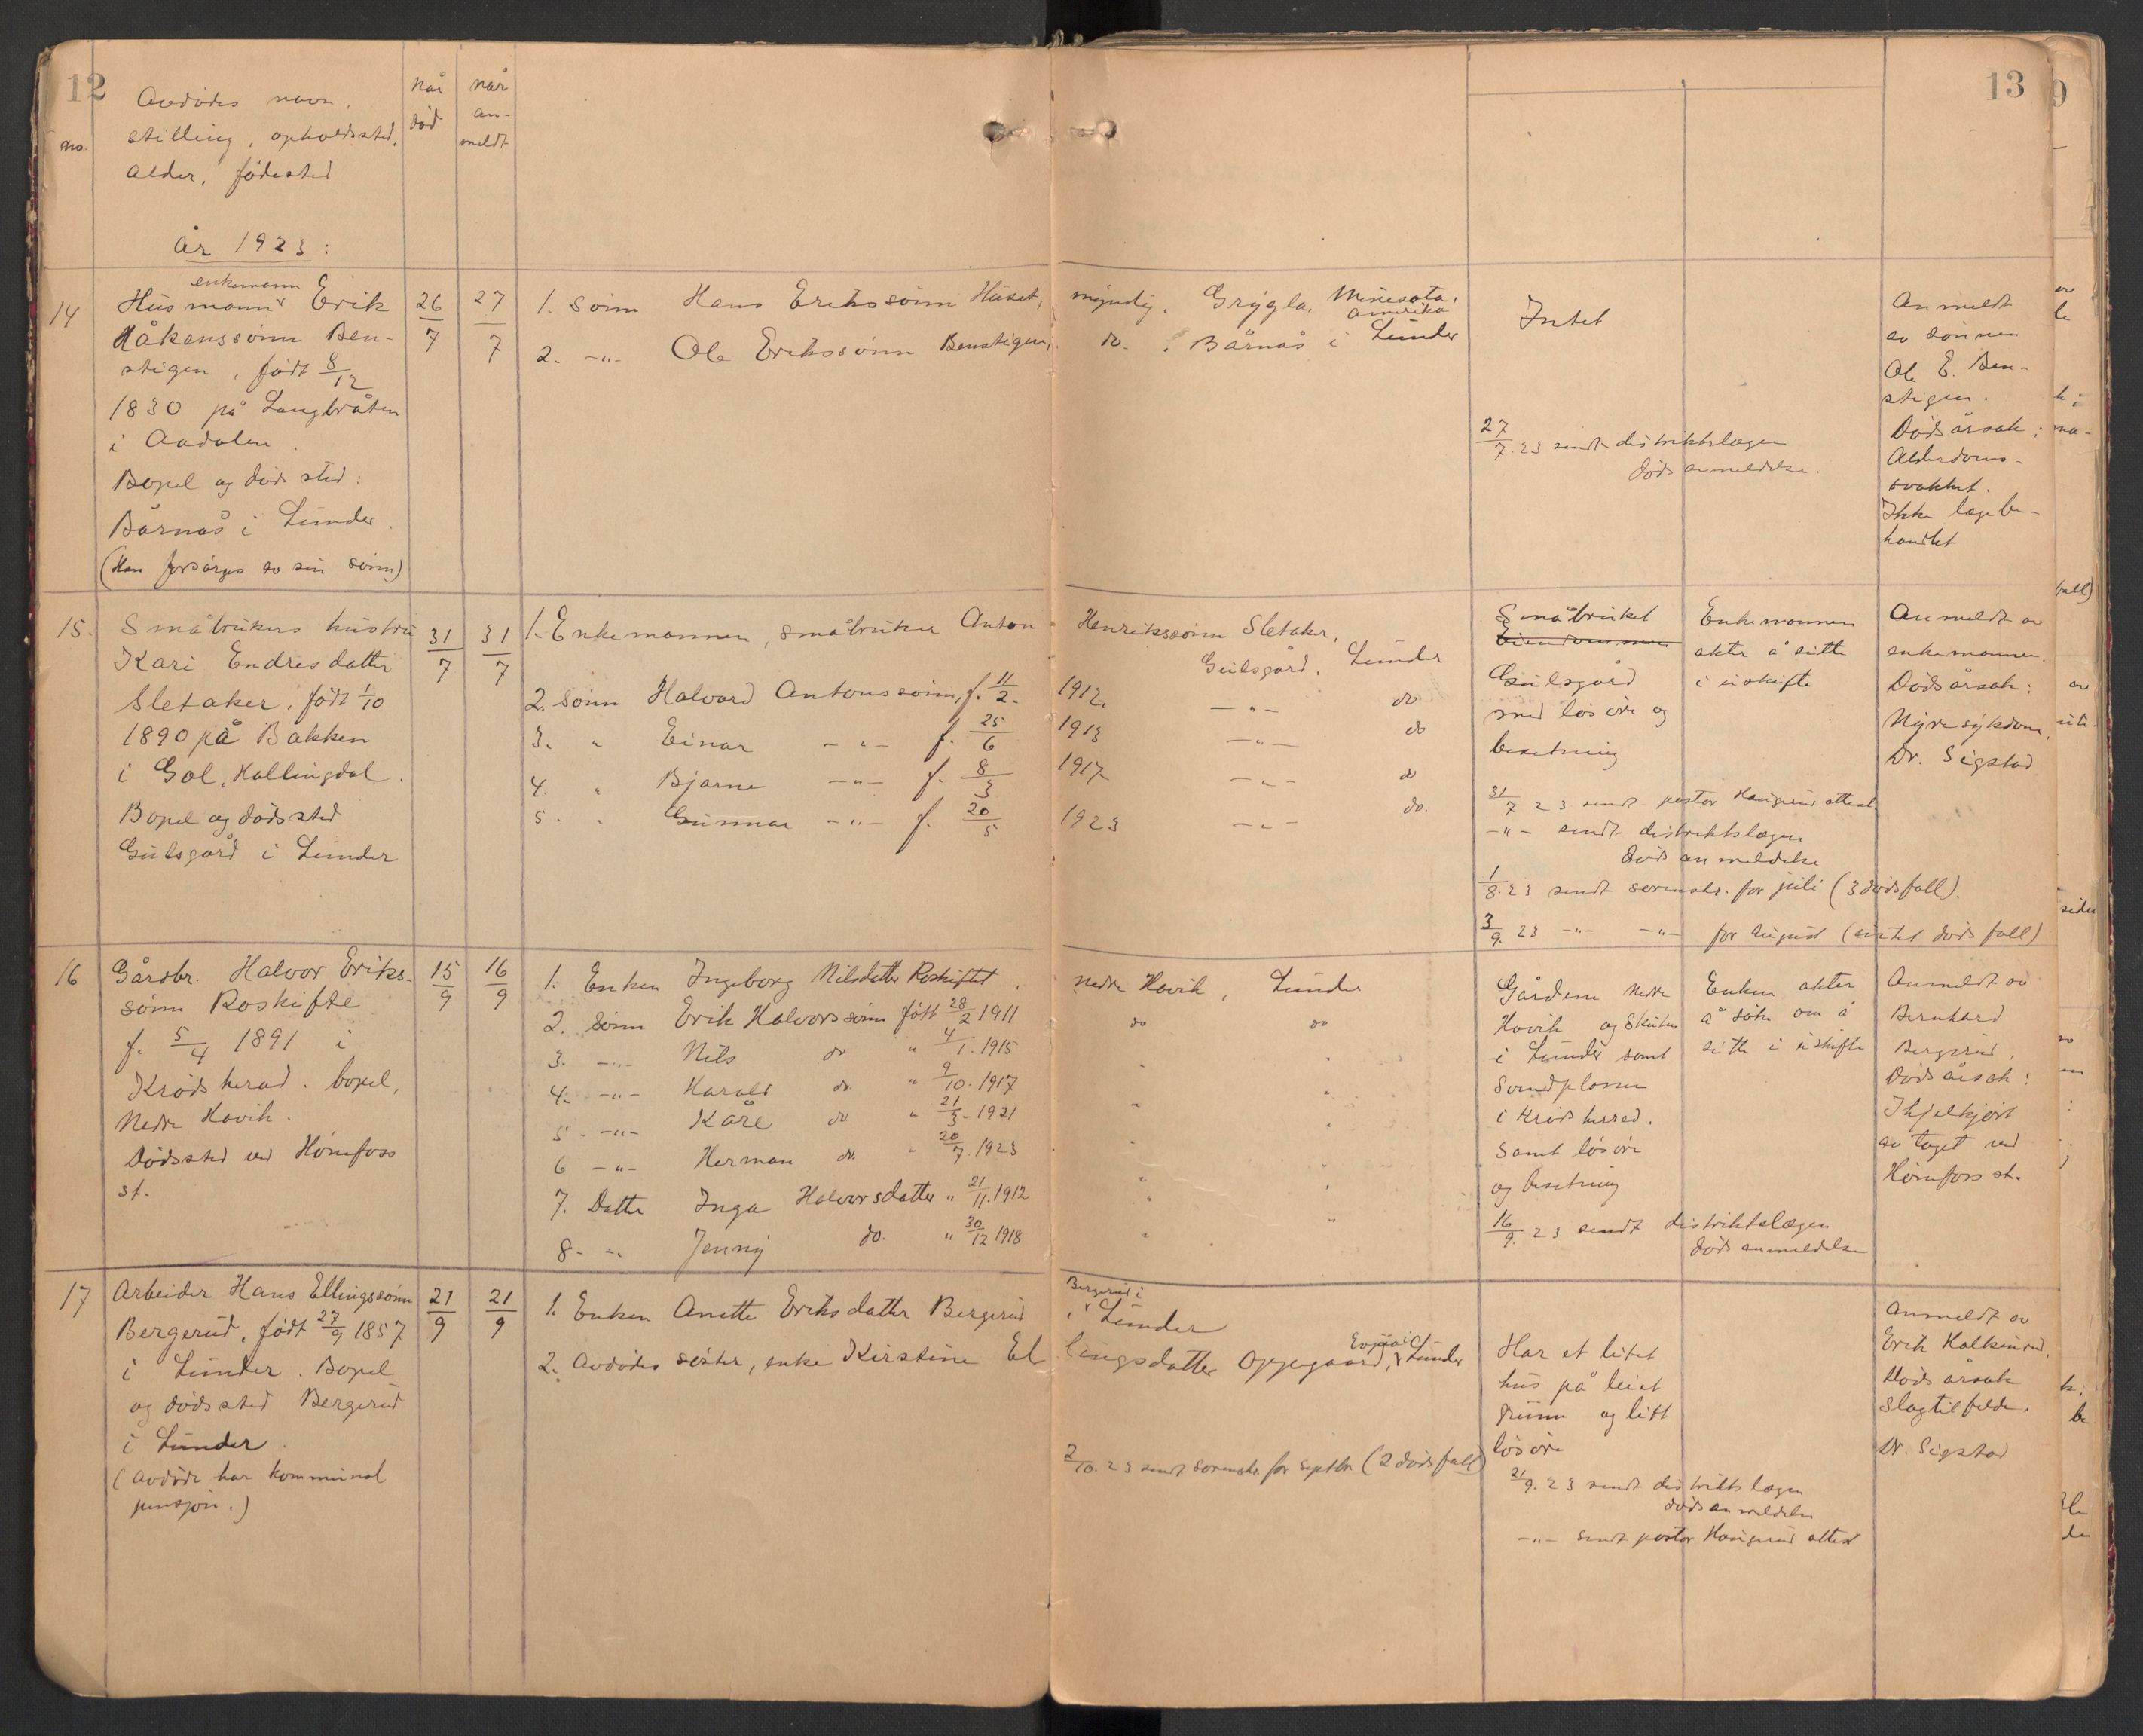 12
13
no.
Avdødes navn,
stilling, opholdssted,
alder, fødested
når
død
når
an-
meldt
år 1923:
14
enkemann
Husmann Erik
Håkenssønn Ben-
stigen, født 8/12
1830 på Langbråten
i Aadalen.
Bopel og dødssted:
Bårnås i Lunder.
(Han forsørges av sin sønn)
26/7
27/7
1. sønn Hans Erikssønn Huset, myndig. Grygla, Minesota,
Amerika
2. -"- Ole Erikssønn Benstigen, do. Bårnås i Lunder
Intet
27/7.23 sendt distriktslægen
dødsanmeldelse.
Anmeldt
av sønnen
Ole E. Ben-
stigen.
Dødsårsak:
Alderdoms-
svakhet.
Ikke lægebe-
handlet
15.
Småbrukers hustru
Kari Endresdatter
Sletaker, født 1/10
1890 på Bakken
i Gol, Hallingdal.
Bopel og dødssted
Gulsgård i Lunder
31/7
31/7
1. Enkemannen, småbruker Anton Henrikssønn Sletaker,
Gulsgård, Lunder
2. sønn Halvard Antonssønn, f. 11/2. 1912. -"- do
3. " Einar -"- f. 25/6 1913 -"- do
4. " Bjarne -"- f. 8/3 1917 -"- do
5. " Gunnar -"- f. 20/5 1923 -"- do.
Småbruket
Eiendommen
Gulsgård
med løsøre og
besetning
Enkemannen
akter å sitte
i uskifte
31/7 23 sendt pastor Haugerud attest
-"- sendt distriktslægen
dødsanmeldelse
1/8.23 sendt sorenskr. for juli (3 dødsfall).
3/9.23 -"- -"- for august (intet dødsfall)
Anmeldt av
enkemannen.
Dødsårsak:
Nyresykdom,
Dr. Sigstad
16
Gårdbr. Halvor Eriks-
sønn Roskifte
f. 5/4 1891 i
Krødsherad. bopel,
Nedre Hovik.
Dødssted ved Hønefoss
st.
15/9
16/9
1. Enken Ingeborg Nilsdatter Roskiftet, Nedre Hovik, Lunder
2. sønn Erik Halvorssønn født 28/2 1911 do do
3. -"- Nils do " 4/1. 1915 " "
4. -"- Harald do. " 9/10. 1917 " "
5. -"- Kåre do " 21/3. 1921 " "
6 -"- Herman do. " 20/7. 1923 " "
7. Datter Inga Halvorsdatter " 21/11. 1912 " "
8. -"- Jenny do. " 30/12 1918 " "
Gårdene Nedre
Hovik og
i Lunder samt
i Krødsherred.
samt løsøre
og besetning
Enken akter
å søke om å
sitte i uskifte
16/9.23 sendt distriktslægen
dødsanmeldelse
Anmeldt av
Bernhard
Bergerud.
Dødsårsak:
Ihjelkjørt
av toget ved
Hønefoss st.
17
Arbeider Hans Ellingssønn
Bergerud, født 27/9 1857
i Lunder. Bopel
og dødssted Bergerud
i Lunder.
(Avdøde har kommunal
pensjon.)
21/9
21/9
1. Enken Anette Eriksdatter Bergerud, Bergerud i
Lunder
2. Avdødes søster, enke Kirstine Ellingsdatter Oppegaard, Lunder
2/10.23 sendt sorenskr. for septbr (2 dødsfall)
Har et litet
hus på leiet
grunn og litt
løsøre
21/9.23 sendt distriktslægen
dødsanmeldelse
-"- sendt pastor Haugerud attest
Anmeldt av
Erik Halkinrud.
Dødsårsak
slagtilfelde.
Dr. Sigstad